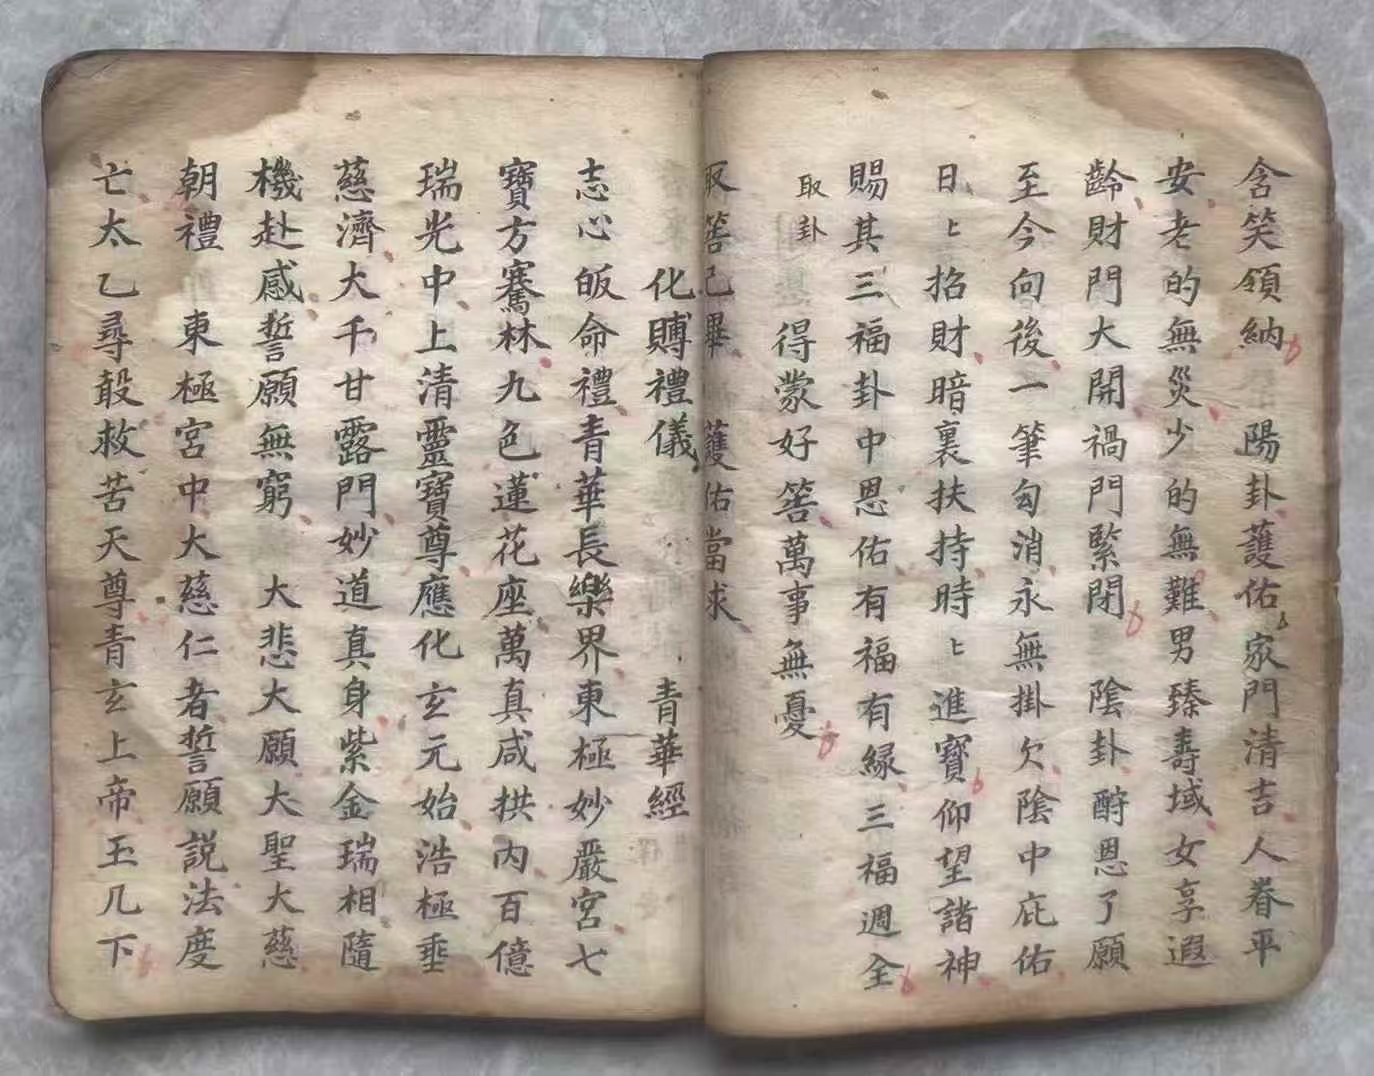 含笑領納　陽卦護佑家門清吉人眷平
安老的無災少的無難男臻壽域女享遐
齡財門大開禍門緊閉　陰卦酧恩了願
至今向後一筆勾消永無掛欠陰中庇佑
日匕招財暗裏扶持時匕進寶仰望諸神
賜其三福卦中恩佑有福有緣三福週全
取卦　得蒙好筶萬事無憂
取筶已畢　護佑當求
化賻禮儀　青華經
志心皈命禮青華長樂界東極妙嚴宮七
寶方騫林九色蓮花座萬真咸拱內百億
瑞光中上清靈寶尊應化玄元始浩極垂
慈濟大千甘露門妙道真身紫金瑞相隨
機赴感誓願無窮　大悲大願大聖大慈
朝禮　東極宮中大慈仁者誓願説法度
亡太乙尋聲救苦天尊青玄上帝玉几下